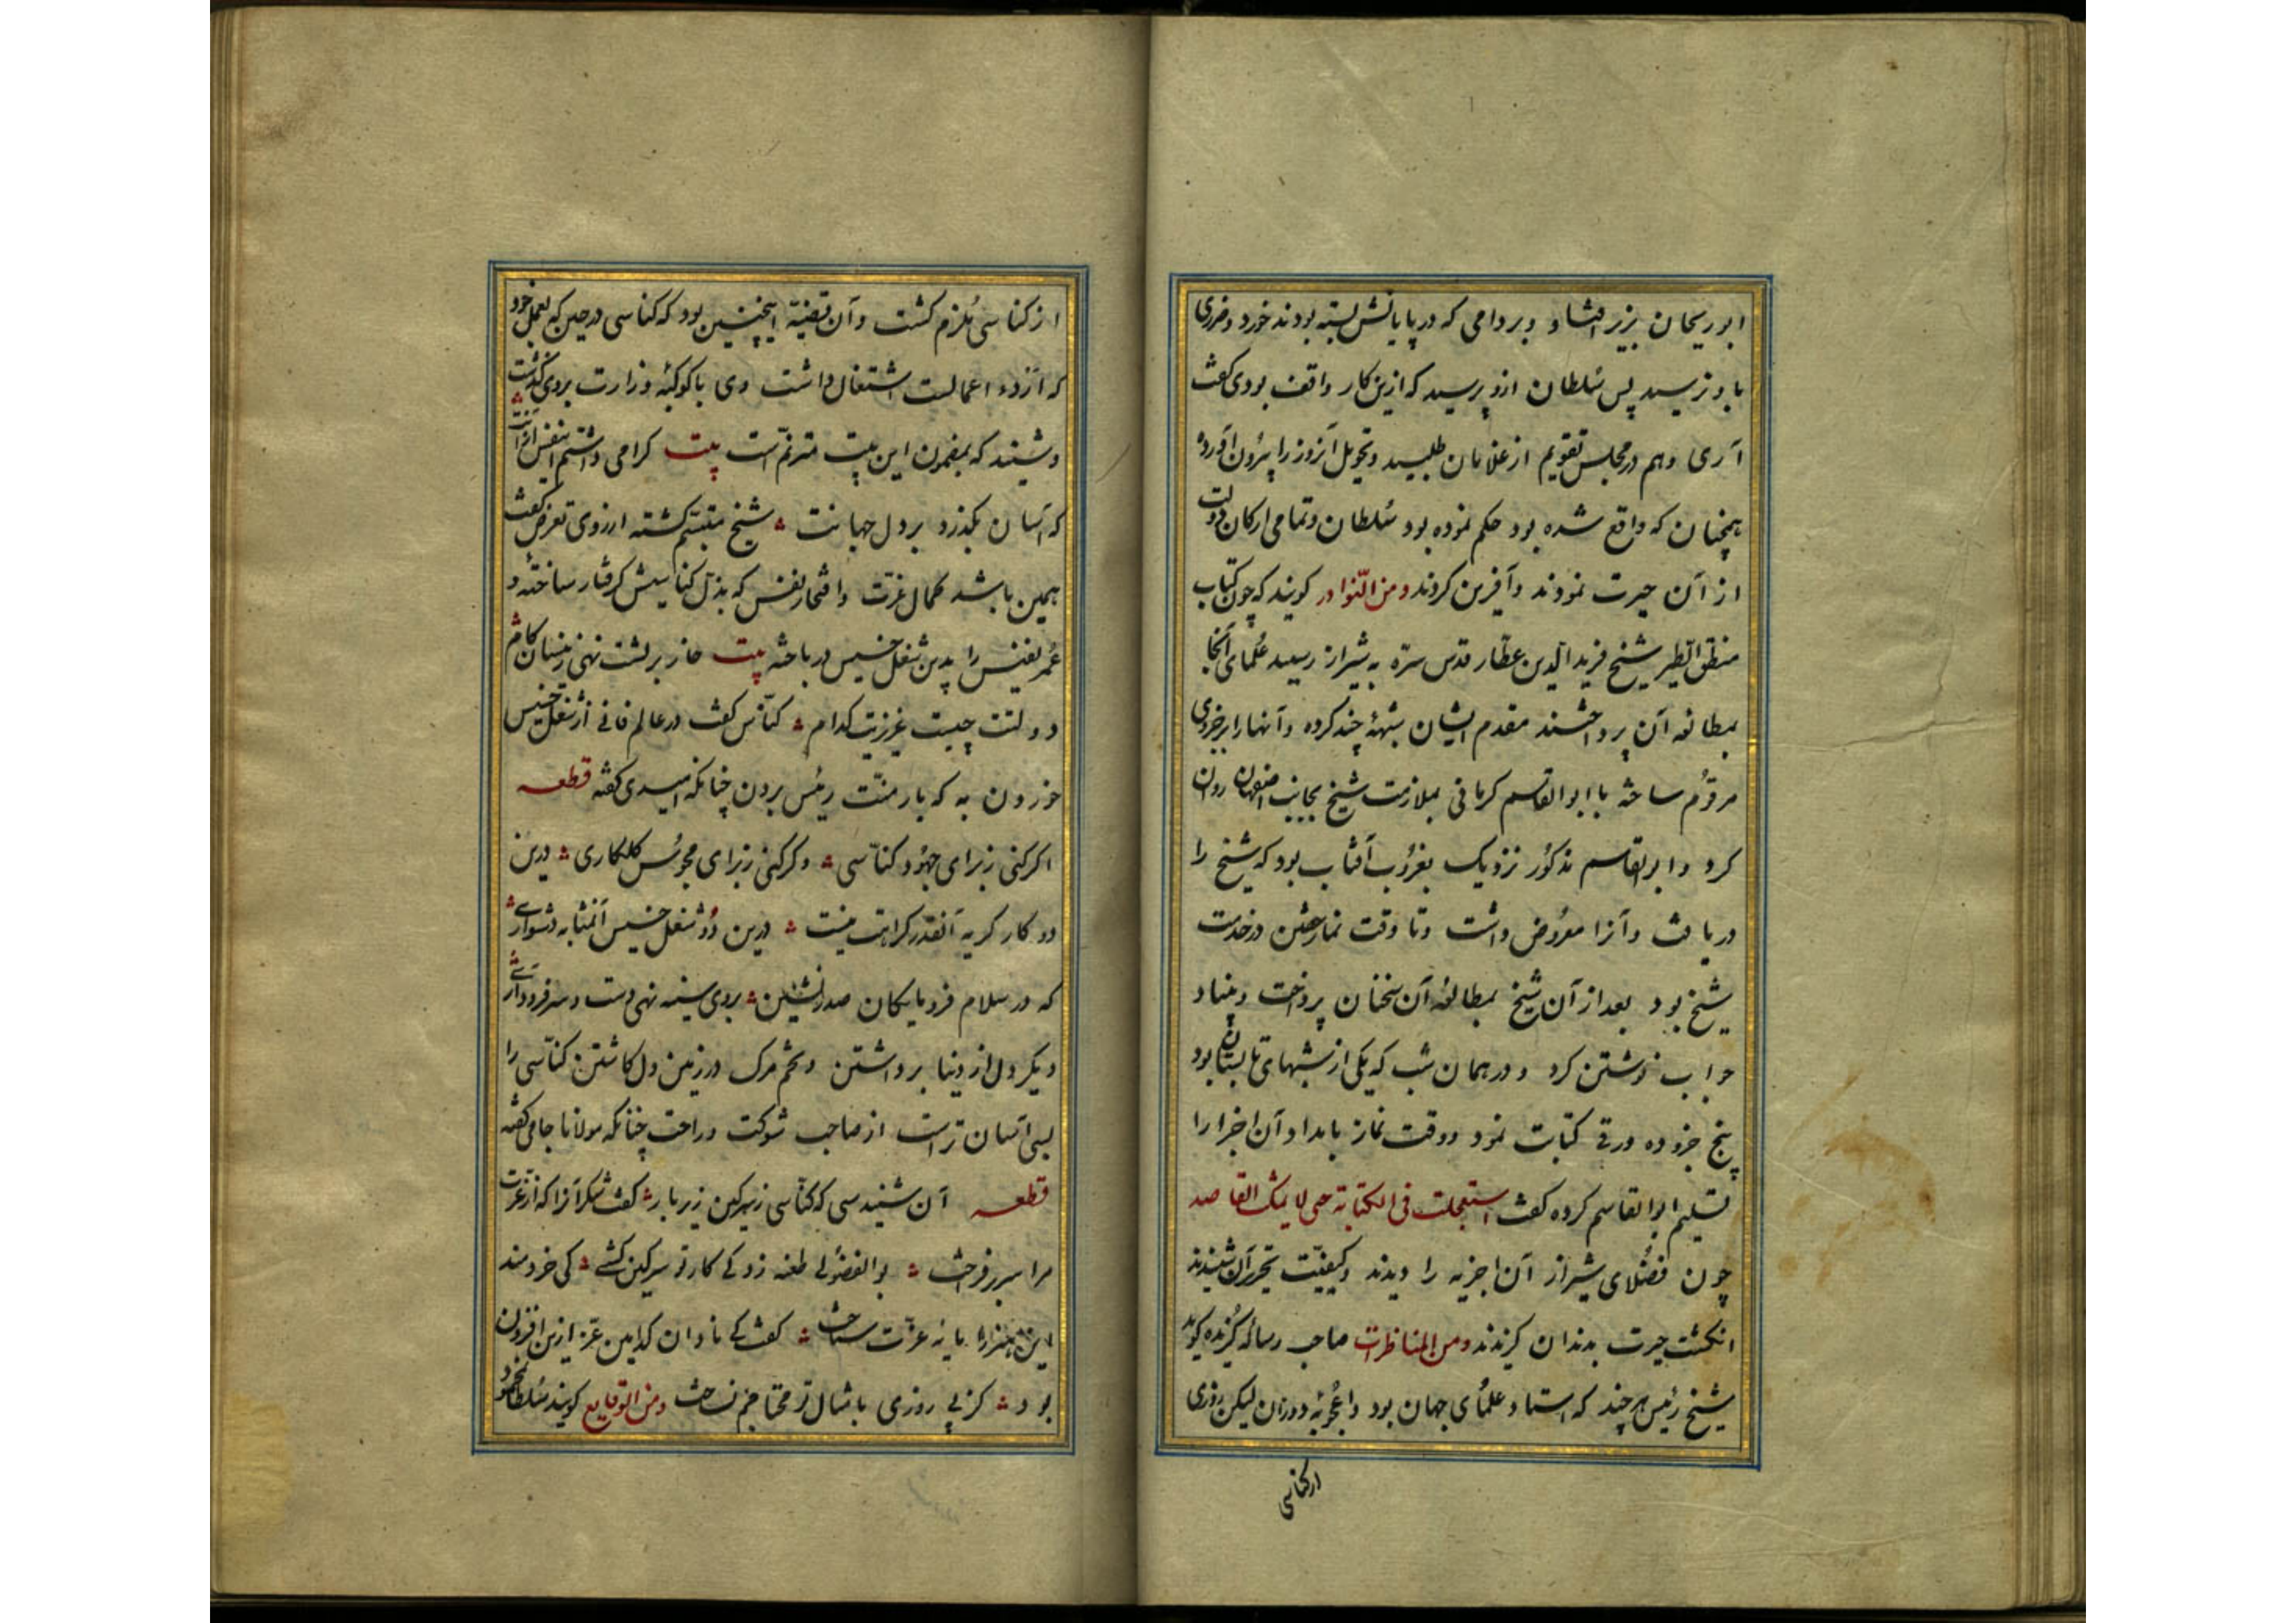 ابوریحان بزیر افتاد و بر دامی که در پایانش بسته بودند خورد و ضرری
باو نرسید پس سُلطان ازو پرسید که ازین کار واقف بودی گفت
آری و هم در مجلس تقویم از غلامان طلبید و تحویل آنروز را بیرون آورد
همچنان که واقع شده بود حکم نموده بود سُلطان و تمامی ارکان دولت
از آن حیرت نمودند و آفرین کردند ومن النّوادر گویند که چون کتاب
منطق الطیر شیخ فرید الدین عطّار قدس سرّه به شیراز رسید عُلمای آنجا
بمطالعه آن پرداختند مقدم ایشان شبههٔ چند کرده و آنها را بر جزوی
مرقوُم ساخته با ابوالقاسم کرمانی بملازمت شیخ بجانب اصفهان روان
کرد و ابوالقاسم مذکوُر نزدیک بغروُب آفتاب بود که شیخ را
دریافت و آنرا معرُوض داشت و تا وقت نماز خفتن در خدمت
شیخ بود بعد از آن شیخ بمطالعهٔ آن سخنان پرداخت و بنیاد
جواب نوشتن کرد و در همان شب که یکی از شبهای تابستان بود
پنج جزو ده ورقی کتابت نمود و وقت نماز بامداد آن اجزا را
تسلیم ابوالقاسم کرده گفت استعجلت فی الکتابة حتی لا یمکث القاصد
چون فضُلای شیراز آن اجزیه را دیدند و کیفیّت تحریر آن شنیدند
انگشت حیرت بدندان گزیدند ومن المناظرات صاحب رسالهٔ گُزیده گوید
شیخ رئیس هر چند که استاد علمُای جهان بود و اعجُوبهٔ دوران لیکن روزی
از کناسی
از کناسی مُلزم گشت و آن قضیّه اینچنین بود که کناسی در حین که بعمل خود
که ازدء اعمالست اشتغال داشت وی با کوکبهٔ وزارت بروی گذشت
و شنید که بمضمون این بیت مترنّم است بیت گرامی داشتم ای نفس ازآنت
که آسان بگذرد بر دل جهانت شیخ متبسّم گشته از روی تعرض گفت
همین باشد کمال عزّت و افتخار نفس که بذلّ کناسیش گرفتار ساختهٔ و
عُمر نفیس را بدین شغل خسیس در باخته بیت خار بر پشت نهی زینسان گام
دولتت چیست عزیزیت کدام کنّاس گفت در عالم فانی از شغل خسیس
خوردن به که بار منّت رئیس بردن چنانکه امیدی گفته قطعه
اگر کنی زبرای جهوُد کنّاسی وگر کنی زبرای مجوُس گلکاری درین
دو کار کریه آنقدر کراهت نیست درین دُو شغل خسیس آنمثابه دشواری
که در سلام فرومایگان صدرنشین بروی سینه نهی دست و سر فرود آری
دیگر دل از دنیا برداشتن و تخم مرگ در زمین دل کاشتن کناّسی را
بسی آسان تر است از صاحب شوکت و راحت چنانکه مولانا جامی گفته
قطعه آن شنیدستی که کنّاسی زسرگین زیر بار گفت شکر آنرا که از عزّت
مرا سر برفراخت بوالفضُولی طعنه زد کی کار تو سرگین کشی کی خردمند
این هنر را مایهٔ عزّت ساخت گفت کی نادان کدامین عزّ ازین افزون
بود کز پی روزی بامثال تو محتاجم نساخت ومن الوقایع گویند سُلطان محمود